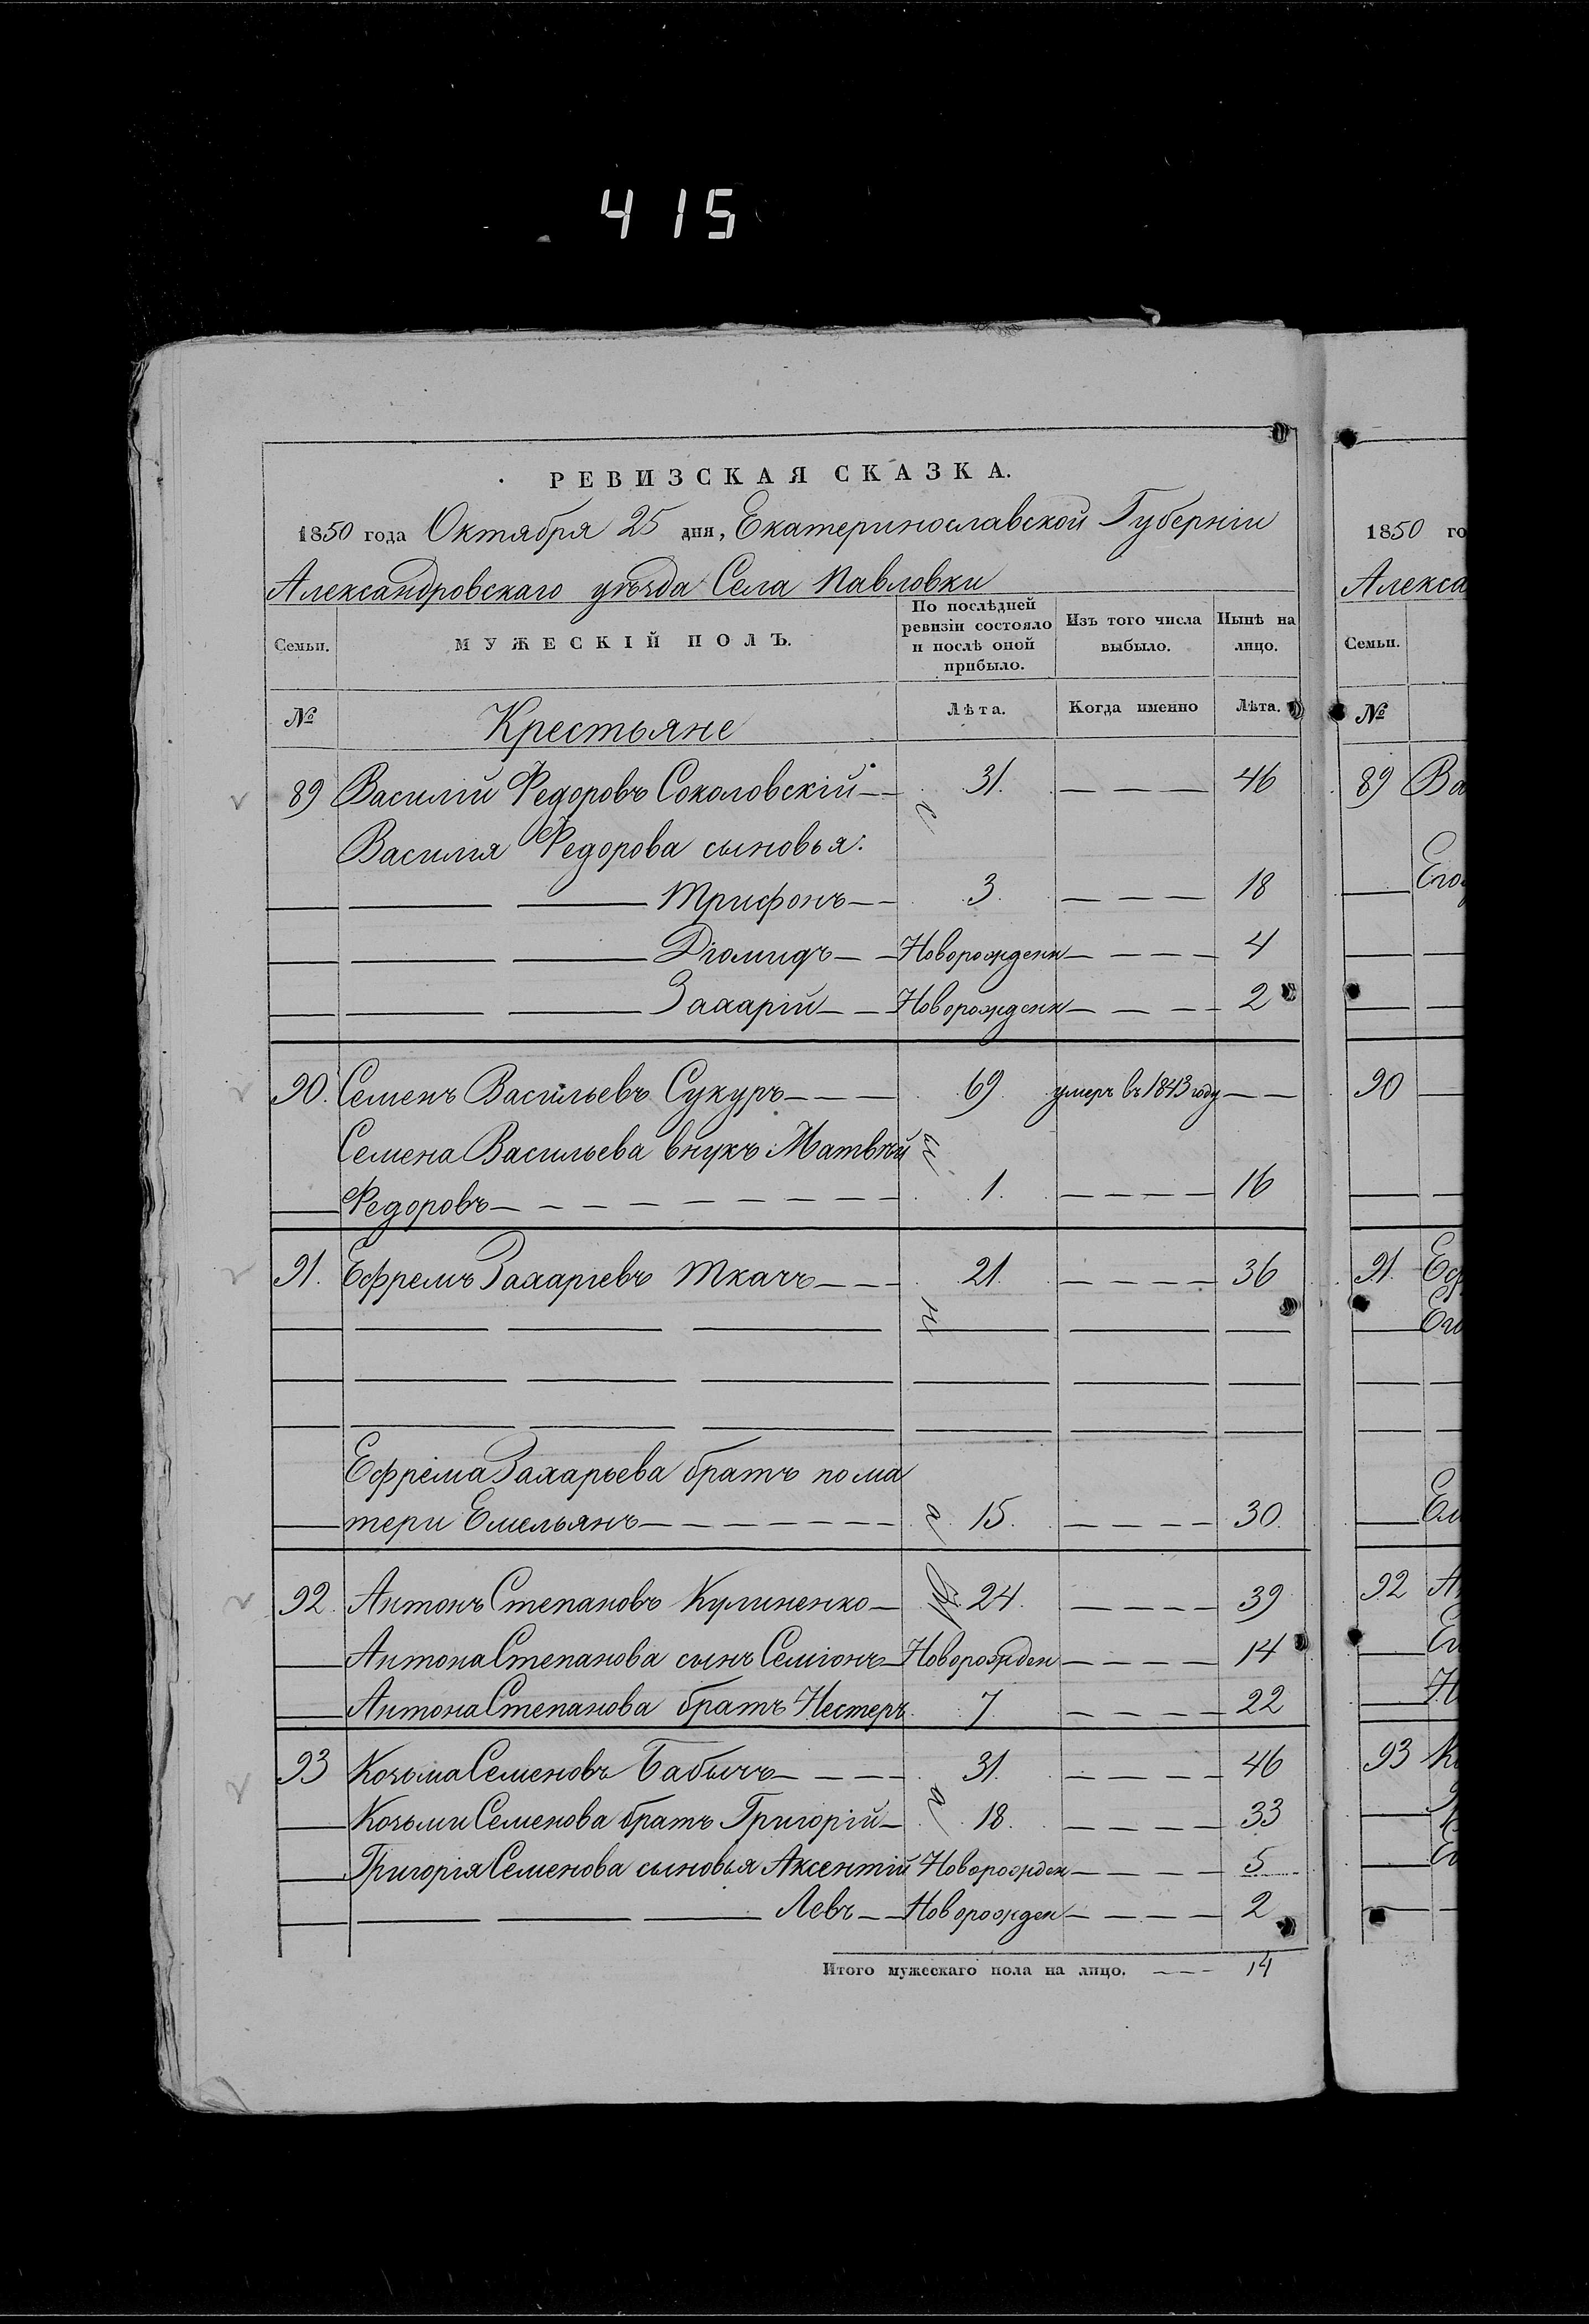 415
РЕВИЗСКАЯ СКАЗКА.
1850 года Октября 25 дня, Екатеринославской Губерніи
Александровскаго уѣзда Села Павловки
Семьи. МУЖЕСКІЙ ПОЛЪ. По послѣдней ревизіи состояло и послѣ оной прибыло. Изъ того числа выбыло. Нынѣ на лицо.
№ Крестьяне Лѣта. Когда именно Лѣта.
89 Василій Федоровъ Соколовскій 31. 46
Василія Федорова сыновья:
Трифонъ 3. 18
Діомидъ Новорожденн 4
Захарій Новорожденн 2
90. Семенъ Васильевъ Сукуръ 69 умеръ въ 1843 году
Семена Васильева внукъ Матвѣй
Федоровъ 1. 16
91. Ефремъ Захаріевъ Ткачъ 21. 36
Ефрема Захарьева братъ по ма
тери Емельянъ 15. 30.
92. Антонъ Степановъ Кулиненко 24. 39
Антона Степанова сынъ Семіонъ Новорожден 14
Антона Степанова братъ Нестеръ 7 22
93 Козьма Семеновъ Бабычъ 31. 46
Козьми Семенова братъ Григорій 18. 33
Григорія Семенова сыновья Аксентій Новорожден 5
Левъ Новорожден 2
Итого мужескаго пола на лицо. 14
1850 го
Алекса
Семьи.
№
89 Ва
Его
90
91. Еф
Его
Ем
92 Ан
Ег
Н
93 Ко